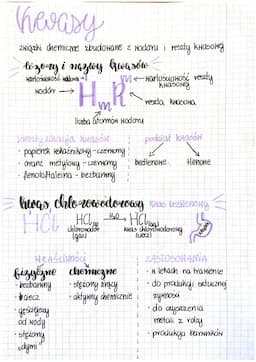 Kwasy
związki chemiczne zbudowane z wodoru i reszty kwasowej
wzory i nazwy kwasów
wartościowość wodoru
wartościowość reszty kwasowej
wodór
HmR
m
reszta kwasowa
liczba atomów wodoru
identyfikacja kwasów
· papierek wskaźnikowy - czerwony
· oranż metylowy - czerwony
· fenoloftaleina - bezbarwny
podział kwasów
beztlenowe
tlenowe
kwas chlorowodorowy
kwas beztlenowy
HCl
HCl(g) H₂O HCl(aq)
chlorowodór (gaz)
kwas chlorowodorowy (ciecz)
WŁAŚCIWOŚCI
fizyczne
· bezbarwny
· ciecz
· gęstszy od wody
· stężony dymi
chemiczne
· stężony żrący
· aktywny chemicznie
ZASTOSOWANIA
· w lekach na trawienie
· do produkcji sztucznej żywności
· do czyszczenia metali z rdzy
· produkcja barwników